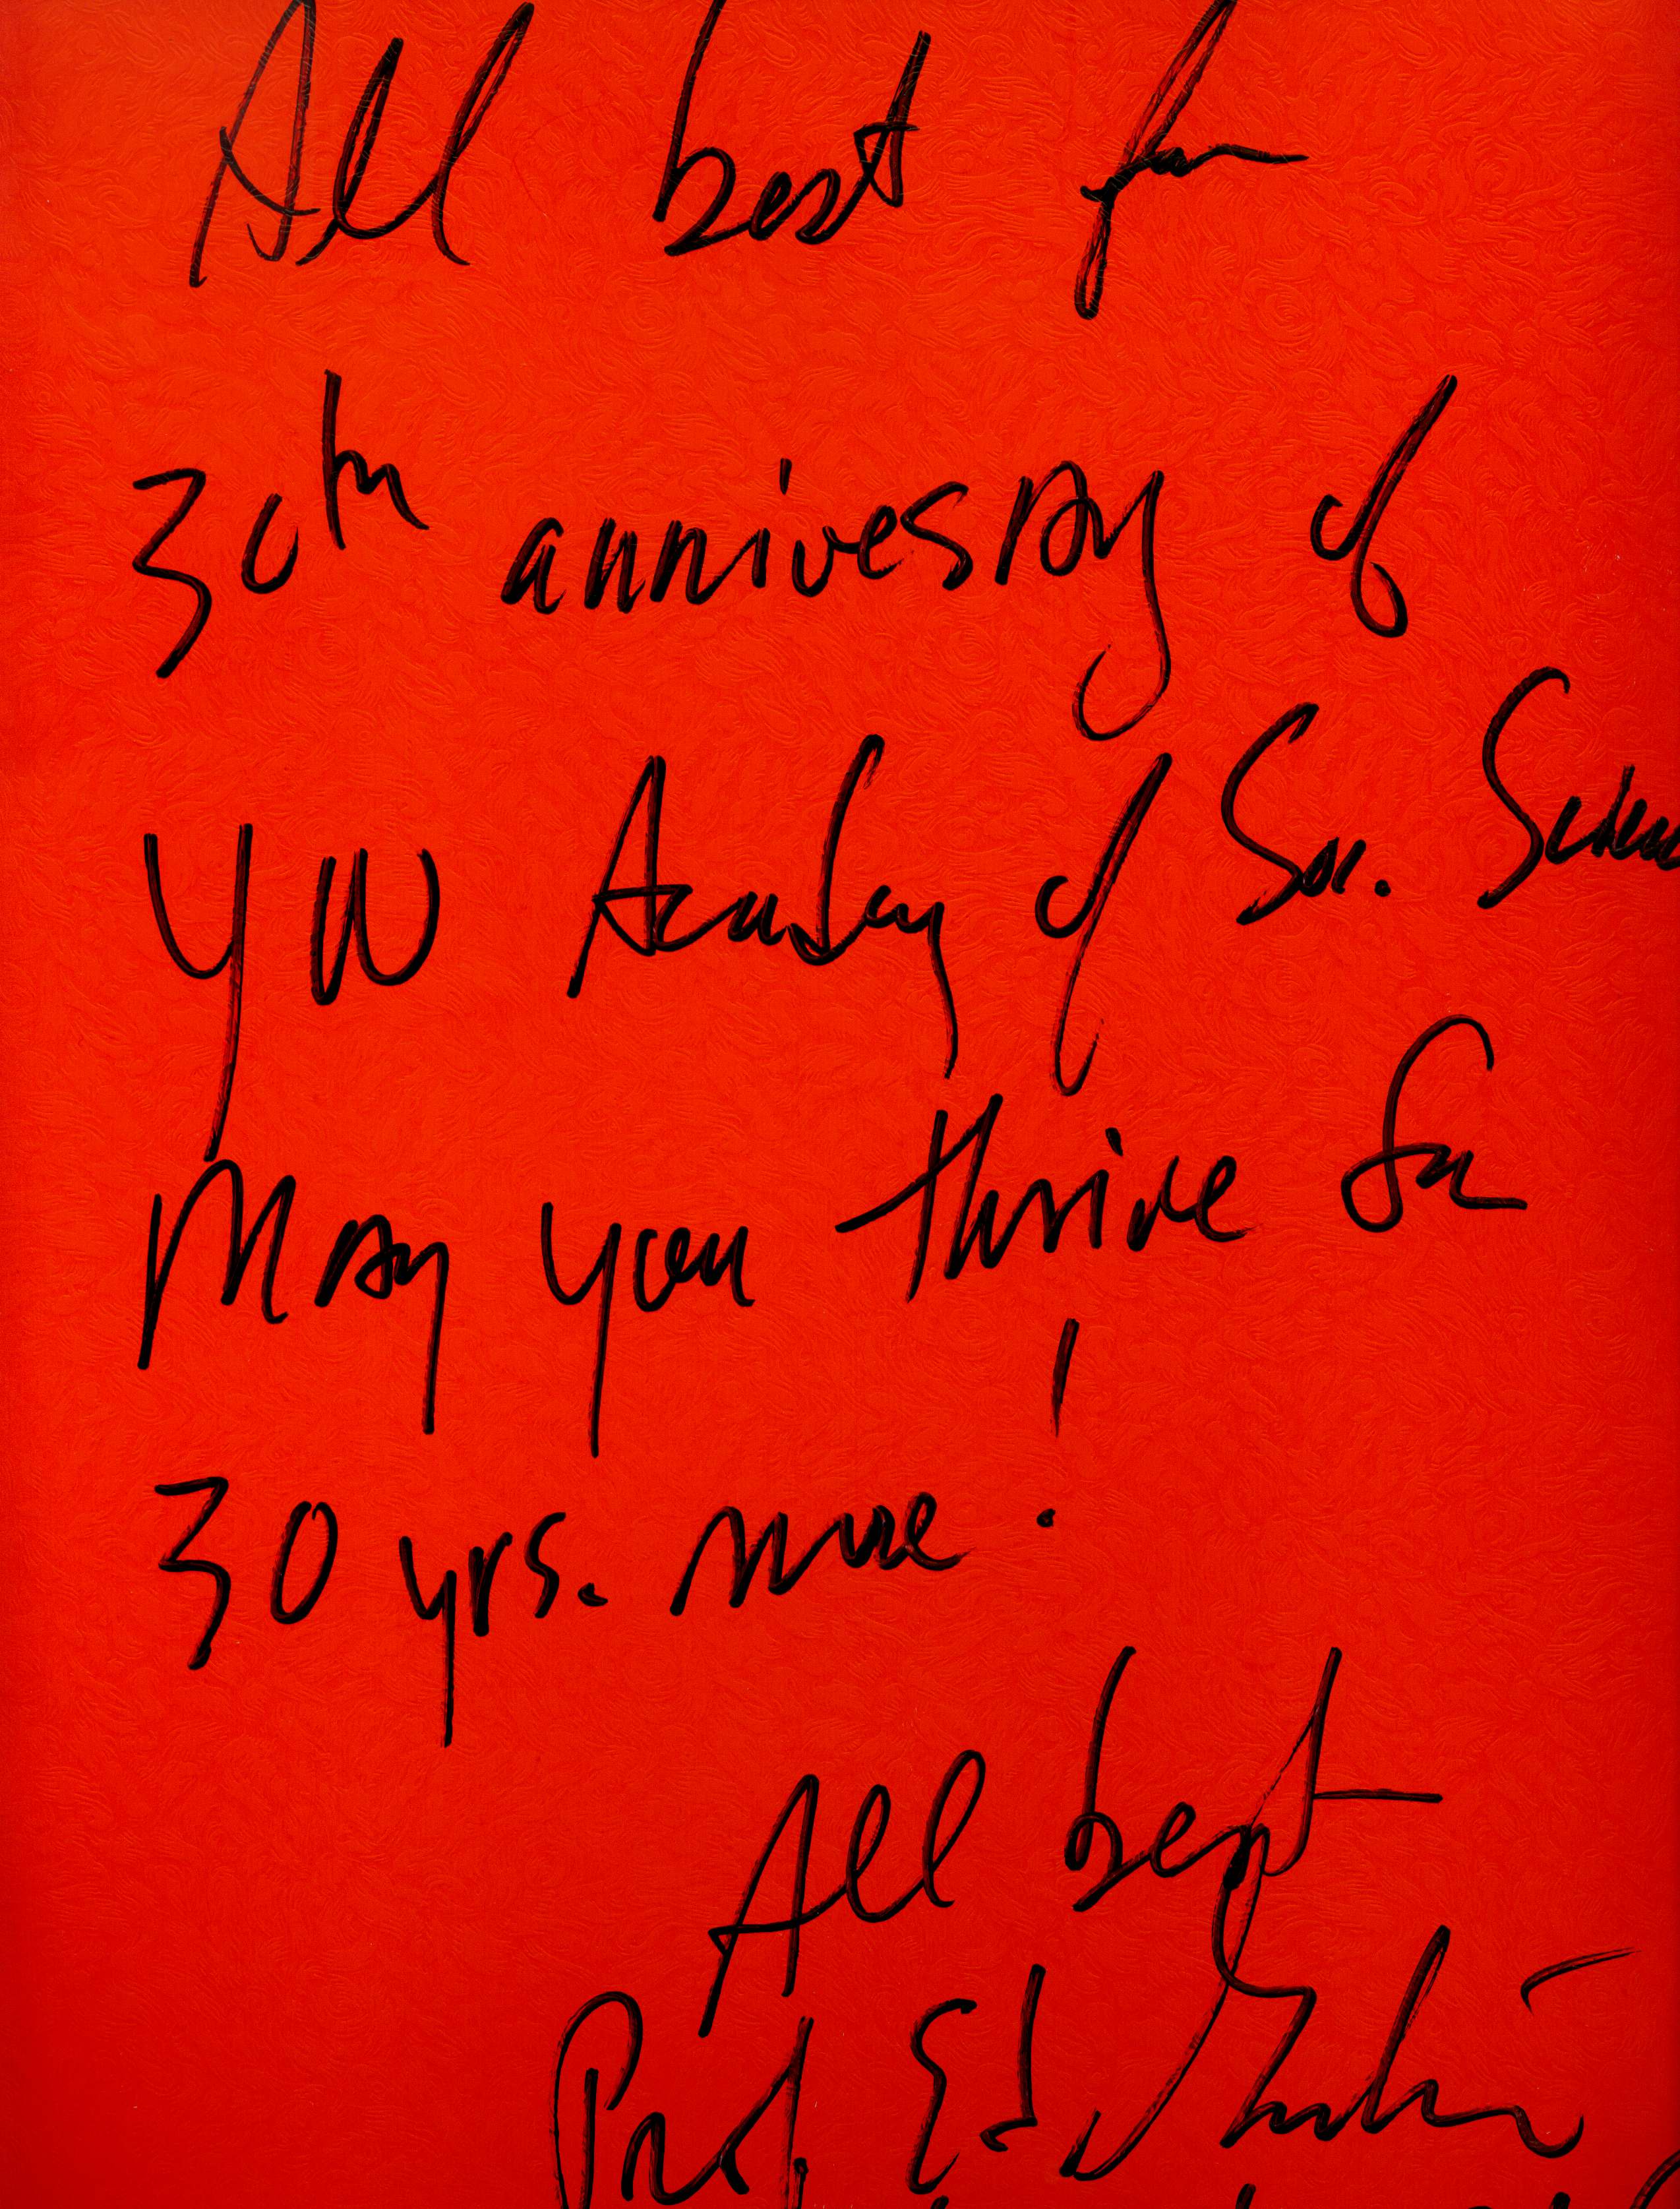 All best for
30th annivesray of
YN Academy of Soc. Scien
May you thrive for
30 yrs. more!
All best
Prof. Ed